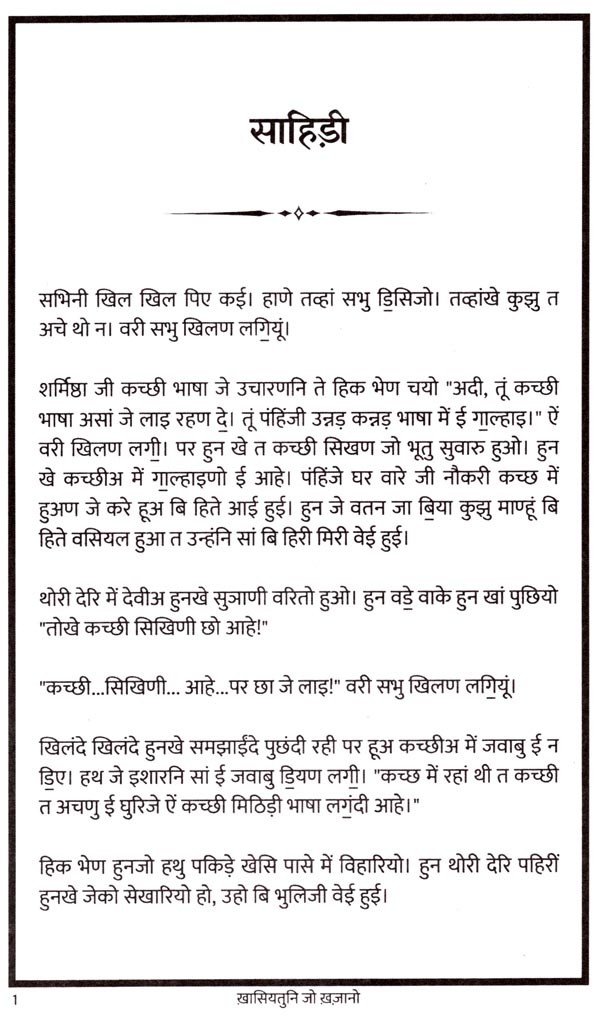 साहिड़ी
सभिनी खिल खिल पिए कई। हाणे तव्हां सभु डि॒सिजो। तव्हांखे कुझु त
अचे थो न। वरी सभु खिलण लगि॒यूं।
शर्मिष्ठा जी कच्छी भाषा जे उचारणनि ते हिक भेण चयो "अदी, तूं कच्छी
भाषा असां जे लाइ रहण दे॒। तूं पंहिंजी उन्नड़ कन्नड़ भाषा में ई गा॒ल्हाइ।" ऐं
वरी खिलण लगी॒। पर हुन खे त कच्छी सिखण जो भूतु सुवारु हुओ। हुन
खे कच्छीअ में गा॒ल्हाइणो ई आहे। पंहिंजे घर वारे जी नौकरी कच्छ में
हुअण जे करे हूअ बि हिते आई हुई। हुन जे वतन जा बि॒या कुझु माण्हूं बि
हिते वसियल हुआ त उन्हंनि सां बि हिरी मिरी वेई हुई।
थोरी देरि में देवीअ हुनखे सुञाणी वरितो हुओ। हुन वडे॒ वाके हुन खां पुछियो
"तोखे कच्छी सिखिणी छो आहे!"
"कच्छी...सिखिणी... आहे...पर छा जे लाइ!" वरी सभु खिलण लगि॒यूं।
खिलंदे खिलंदे हुनखे समझाईंदे पुछंदी रही पर हूअ कच्छीअ में जवाबु ई न
डि॒ए। हथ जे इशारनि सां ई जवाबु डि॒यण लगी॒। "कच्छ में रहां थी त कच्छी
त अचणु ई घुरिजे ऐं कच्छी मिठिड़ी भाषा लगं॒दी आहे।"
हिक भेण हुनजो हथु पकिड़े खेसि पासे में विहारियो। हुन थोरी देरि पहिरीं
हुनखे जेको सेखारियो हो, उहो बि भुलिजी वेई हुई।
1
ख़ासियतुनि जो ख़ज़ानो